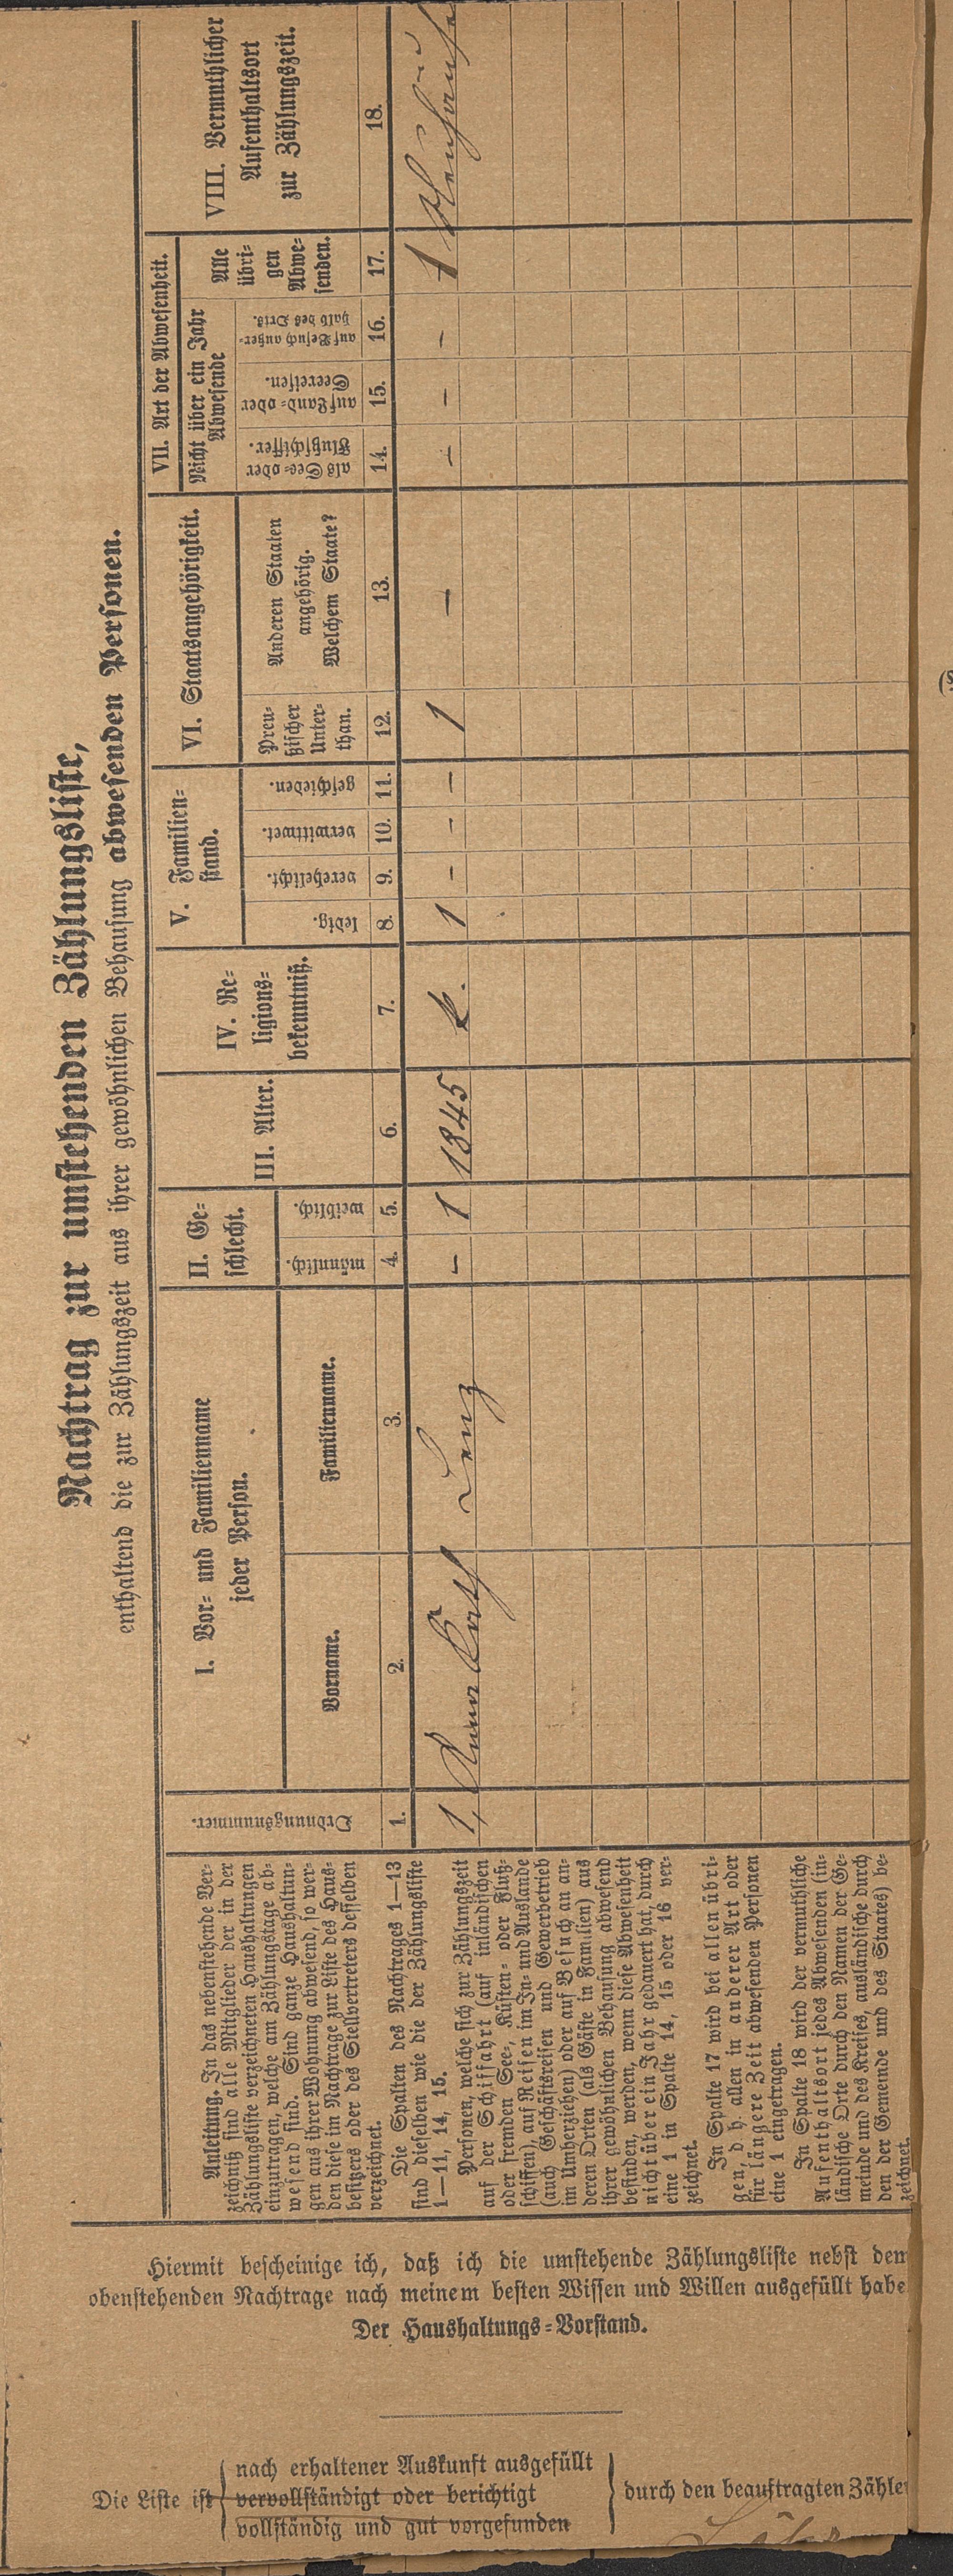 Nachtrag zur umstehenden Zählungsliste,
enthaltend die zur Zählungszeit aus ihrer gewöhnlichen Behausung abwesenden Personen.
Anleitung. In das nebenstehende Ver-
zeichniß sind alle Mitglieder der in der
Zählungsliste verzeichneten Haushaltungen
einzutragen, welche am Zählungstage ab-
wesend sind. Sind ganze Haushaltun-
gen aus ihrer Wohnung abwesend, so wer-
den diese im Nachtrage zur Liste des Haus-
besitzers oder des Stellvertreters desselben
verzeichnet.
Die Spalten des Nachtrages 1—13
sind dieselben wie die der Zählungsliste
1—11, 14, 15.
Personen, welche sich zur Zählungszeit
auf der Schiffahrt (auf inländischen
oder fremden See-, Küsten- oder Fluß-
schiffen), auf Reisen im In- und Auslande
(auch Geschäftsreisen und Gewerbetrieb
im Umherziehen) oder auf Besuch an an-
deren Orten (als Gäste in Familien) aus
ihrer gewöhnlichen Behausung abwesend
befinden, werden, wenn diese Abwesenheit
nicht über ein Jahr gedauert hat, durch
eine 1 in Spalte 14, 15 oder 16 ver-
zeichnet.
In Spalte 17 wird bei allen übri-
gen, d. h. allen in anderer Art oder
für längere Zeit abwesenden Personen
eine 1 eingetragen.
In Spalte 18 wird der vermuthliche
Aufenthaltsort jedes Abwesenden (in-
ländische Orte durch den Namen der Ge-
meinde und des Kreises, ausländische durch
den der Gemeinde und des Staates) be-
zeichnet.
Ordnungsnummer.
I. Vor- und Familienname
jeder Person.
Vorname.
Familienname.
II. Ge-
schlecht.
männlich.
weiblich.
III. Alter.
IV. Re-
ligions-
bekenntniß.
V. Familien-
stand.
ledig.
verehelicht.
verwittwet.
geschieden.
VI. Staatsangehörigkeit.
Preu-
ßischer
Unter-
than.
Anderen Staaten
angehörig.
Welchem Staate?
VII. Art der Abwesenheit.
Nicht über ein Jahr
Abwesende
als See- oder
Flußschiffer.
auf Land- oder
Seereisen.
auf Besuch außer-
halb des Orts.
Alle
übri-
gen
Abwe-
senden.
VIII. Vermuthlicher
Aufenthaltsort
zur Zählungszeit.
1. 2. 3. 4. 5. 6. 7. 8. 9. 10. 11. 12. 13. 14. 15. 16. 17. 18.
1, Anna Kath Lenz – 1 1845 k. 1 – – – 1 – – – – 1
Hiermit bescheinige ich, daß ich die umstehende Zählungsliste nebst dem
obenstehenden Nachtrage nach meinem besten Wissen und Willen ausgefüllt habe
Der Haushaltungs-Vorstand.
nach erhaltener Auskunft ausgefüllt
Die Liste ist vervollständigt oder berichtigt durch den beauftragten Zähle
vollständig und gut vorgefunden